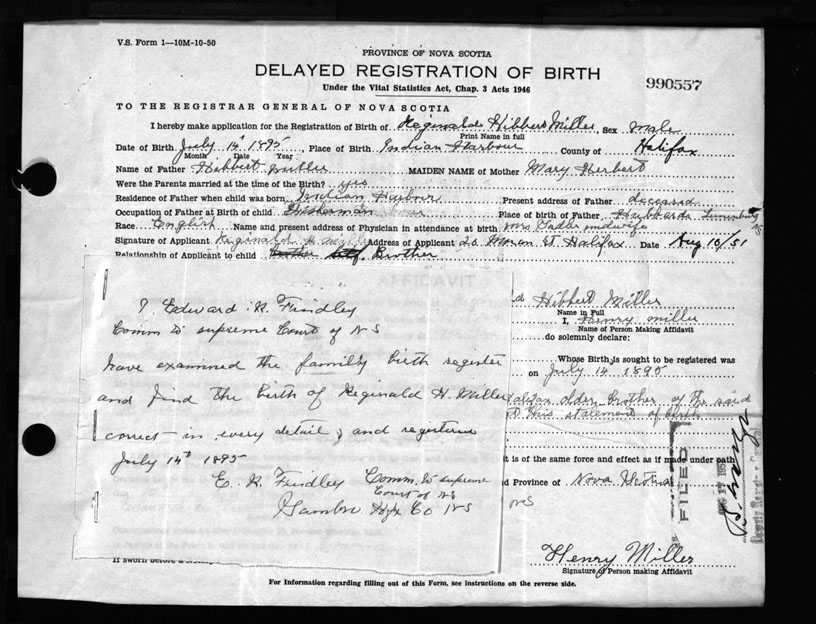 V.S. Form 1—10M-10-50
PROVINCE OF NOVA SCOTIA
DELAYED REGISTRATION OF BIRTH
990557
Under the Vital Statistics Act, Chap. 3 Acts 1946
TO THE REGISTRAR GENERAL OF NOVA SCOTIA
I hereby make application for the Registration of Birth of Reginald Hibbert Miller, Sex male
Print Name in full
Date of Birth July 14 1895, Place of Birth Indian Harbour County of Halifax
Month Date Year
Name of Father Hibbert Miller MAIDEN NAME of Mother Mary Herbert
Were the Parents married at the time of the Birth? yes
Residence of Father when child was born Indian Harbour Present address of Father deceased
Occupation of Father at Birth of child Fisherman Place of birth of Father Lunenburg NS
Race English Name and present address of Physician in attendance at birth Mrs midwife
Signature of Applicant Reginald H Miller Address of Applicant St Halifax Date Aug 10/51
Relationship of Applicant to child brother self. Brother
AFFIDAVIT
I Edward K. Findley
Comm to supreme Court of NS
have examined the family birth register
and find the birth of Reginald H. Miller
correct in every detail, and registered
July 14th 1895
E. K. Findley Comm. to supreme
Court of NS
Hfx Co NS
Hibbert Miller
Name in Full
I, Henry Miller
Name of Person Making Affidavit
do solemnly declare:
Whose Birth is sought to be registered was
on July 14 1895
Halifax older brother of the said
this statement of birth
t is of the same force and effect as if made under oath
d Province of Nova Scotia
NS
FILED
Henry Miller
Signature of Person making Affidavit
If sworn before a
For Information regarding filling out of this Form, see instructions on the reverse side.